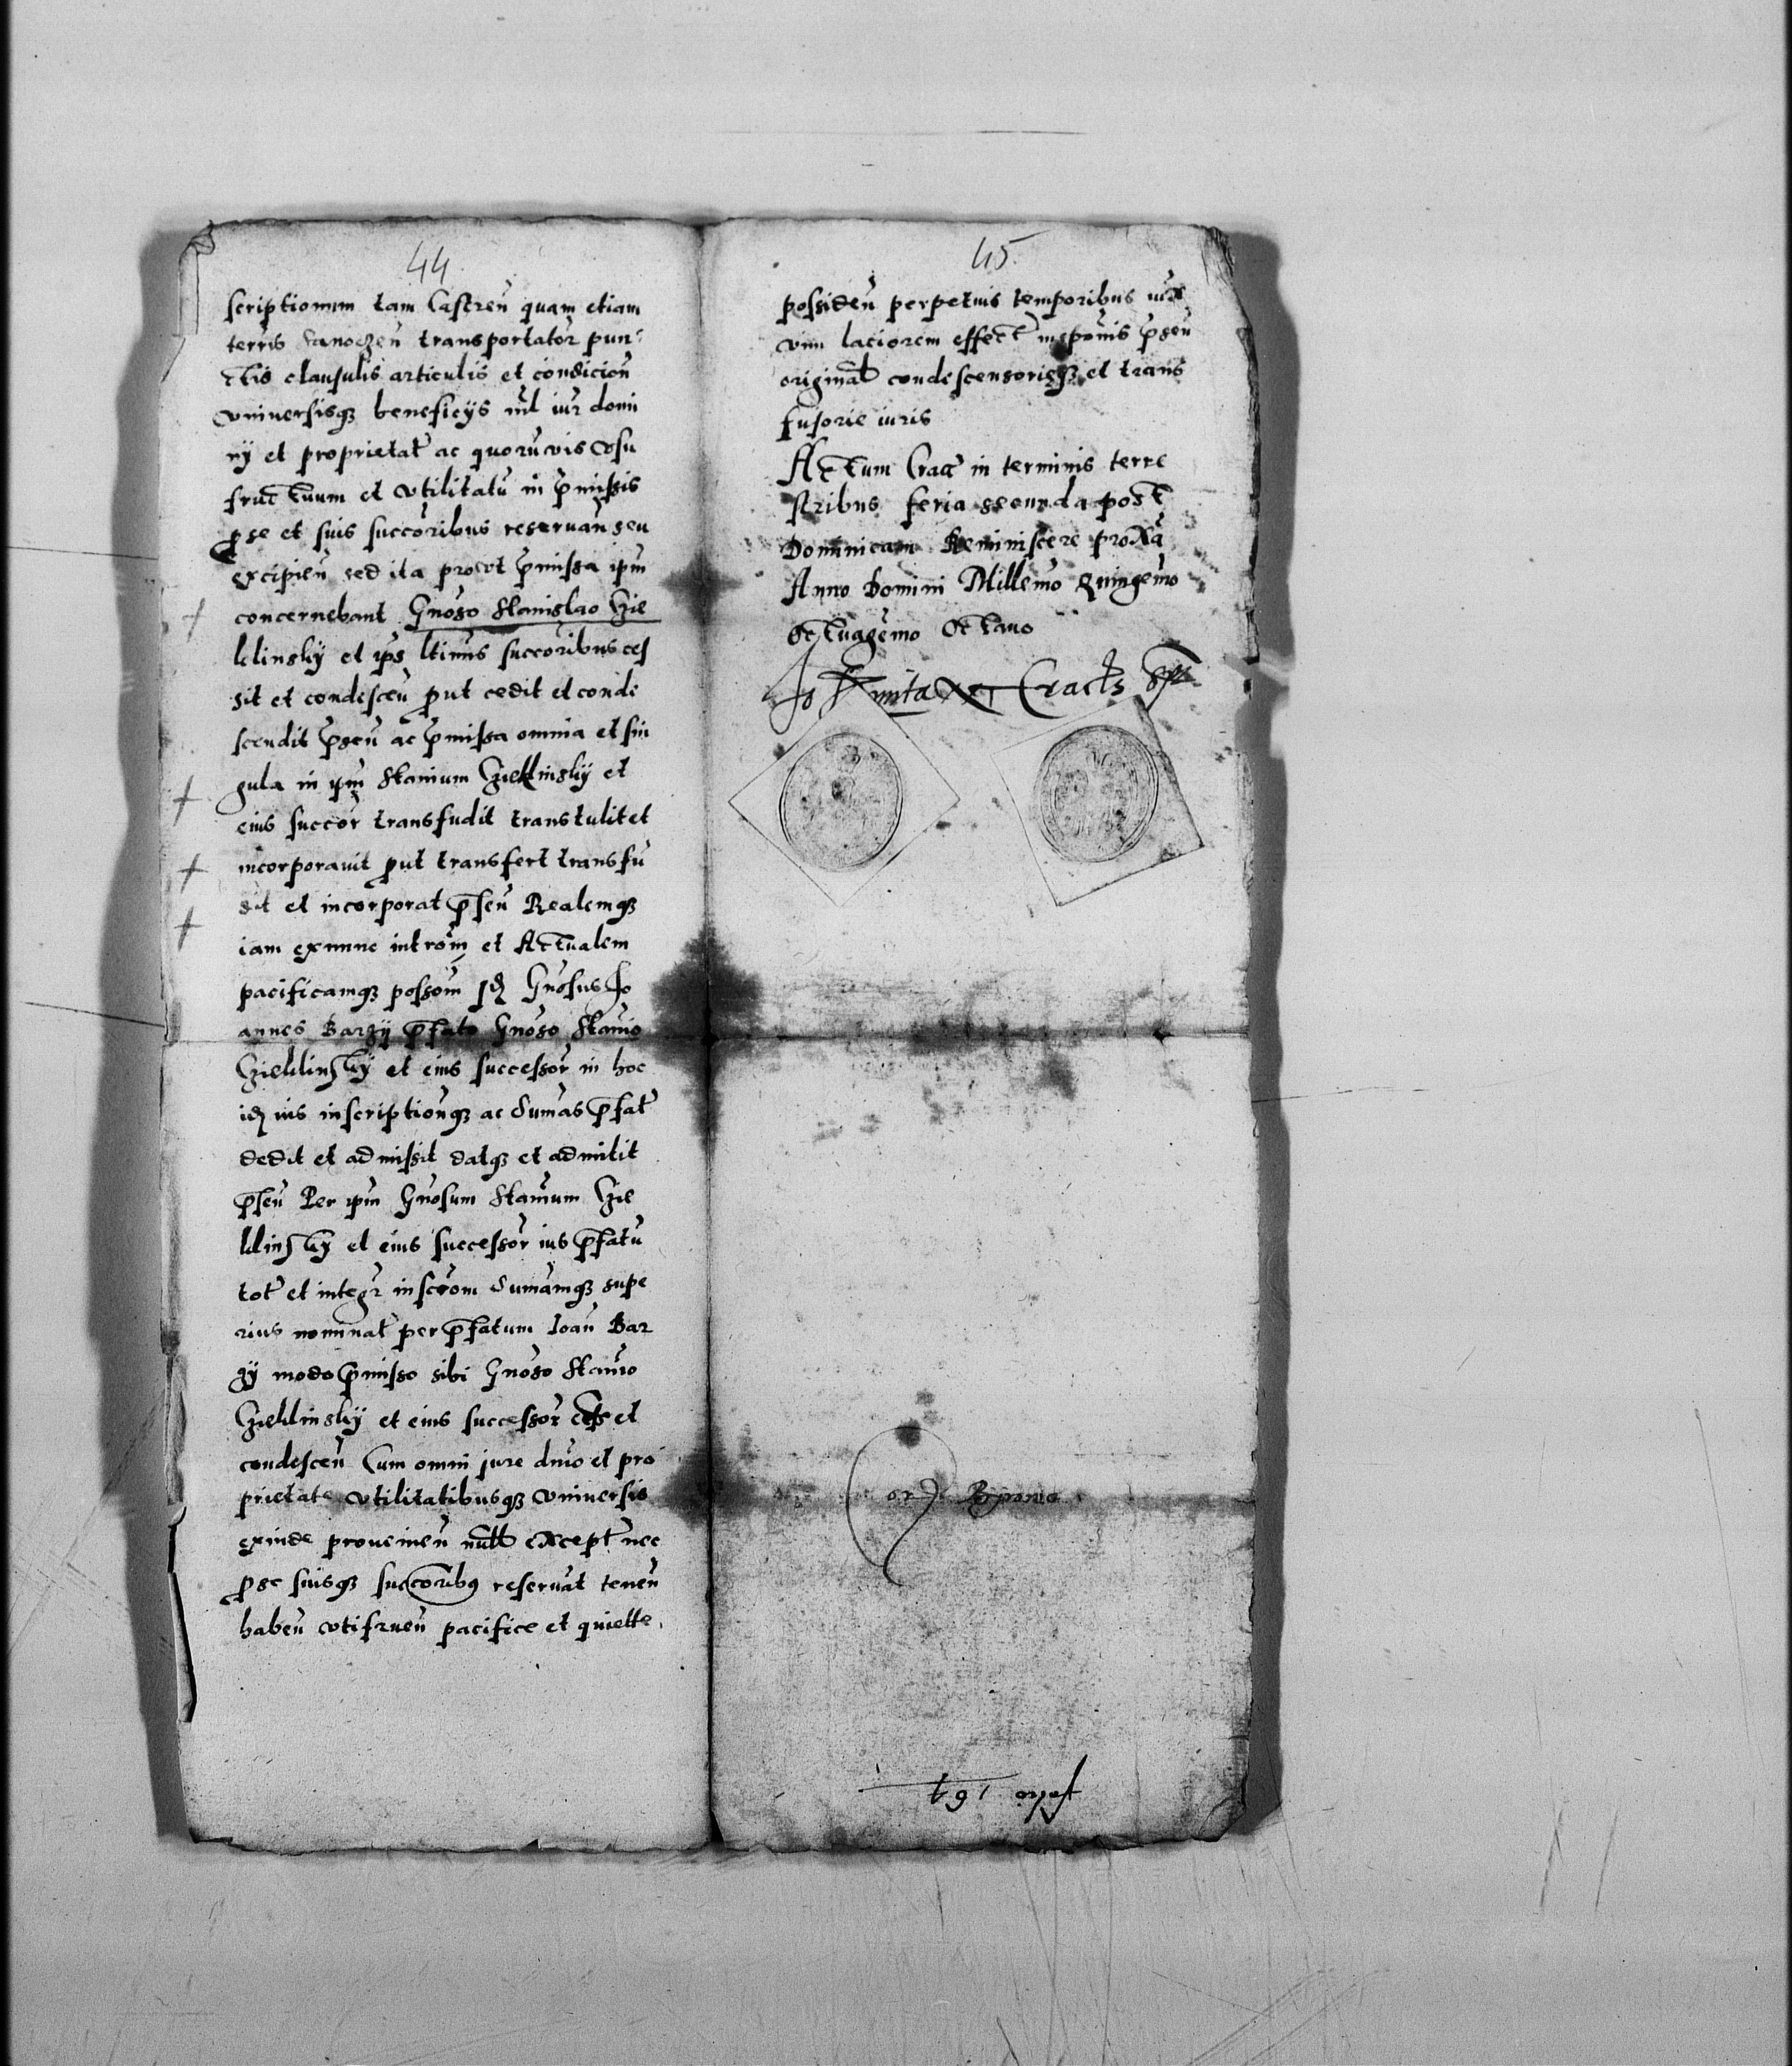 44
scriptionum tam Castren quam etiam
terris Sanoczen transportator pun-
ctis clausulis articulis et condicion
vniuersisq beneficys nil iur domi
ny et proprietat ac quoruvis vsu
fructuum et vtilitatu in pmissis
p se et suis succoribus reseruan seu
excipien sed ita provt pmissa ipm
concernebant Gnoso Stanislao Czie
klinsky et ips ltimis succoribus ces
sit et condescen put cedit et conde
scendit psen ac pmissa omnia et sin
gula in ipm Stanium Czieklinsky et
eius succor transfudit transtulit et
incorporauit put transfert transfu
dit et incorporat psen Realemq
iam exnunc introm et Actualem
pacificamq possom Id Gnosus Jo
annes Barzy pfato Gnoso Stanio
Czieklinsky et eius successor in hoc
id ius inscriptionq ac Sumas pfat
dedit et admissit datq et admitit
psen Per ipm Gnosum Stanium Czie
klinsky et eius successor ius pfatu
tot et integr inscrom Sumamq supe
rius nominat per pfatum Joan Bar
zy modo pmisso sibi Gnoso Stanio
Czieklinsky et eius successor et
condescen Cum omni jure dnio et pro
prietate vtilitatibusq vniuersis
exinde prouenien null except nec
p se suisq succoribq reseruat tenen
haben vtifruen pacifice et quiette
45
possiden perpetuis temporibus
vim laciorem effect psen
original condescensorisq et trans
fusorie iuris
Actum Crac in terminis terre
stribus feria secunda post
Dominicam Reminiscere proxa
Anno Domini Millemo Quingemo
Octuagemo Octauo